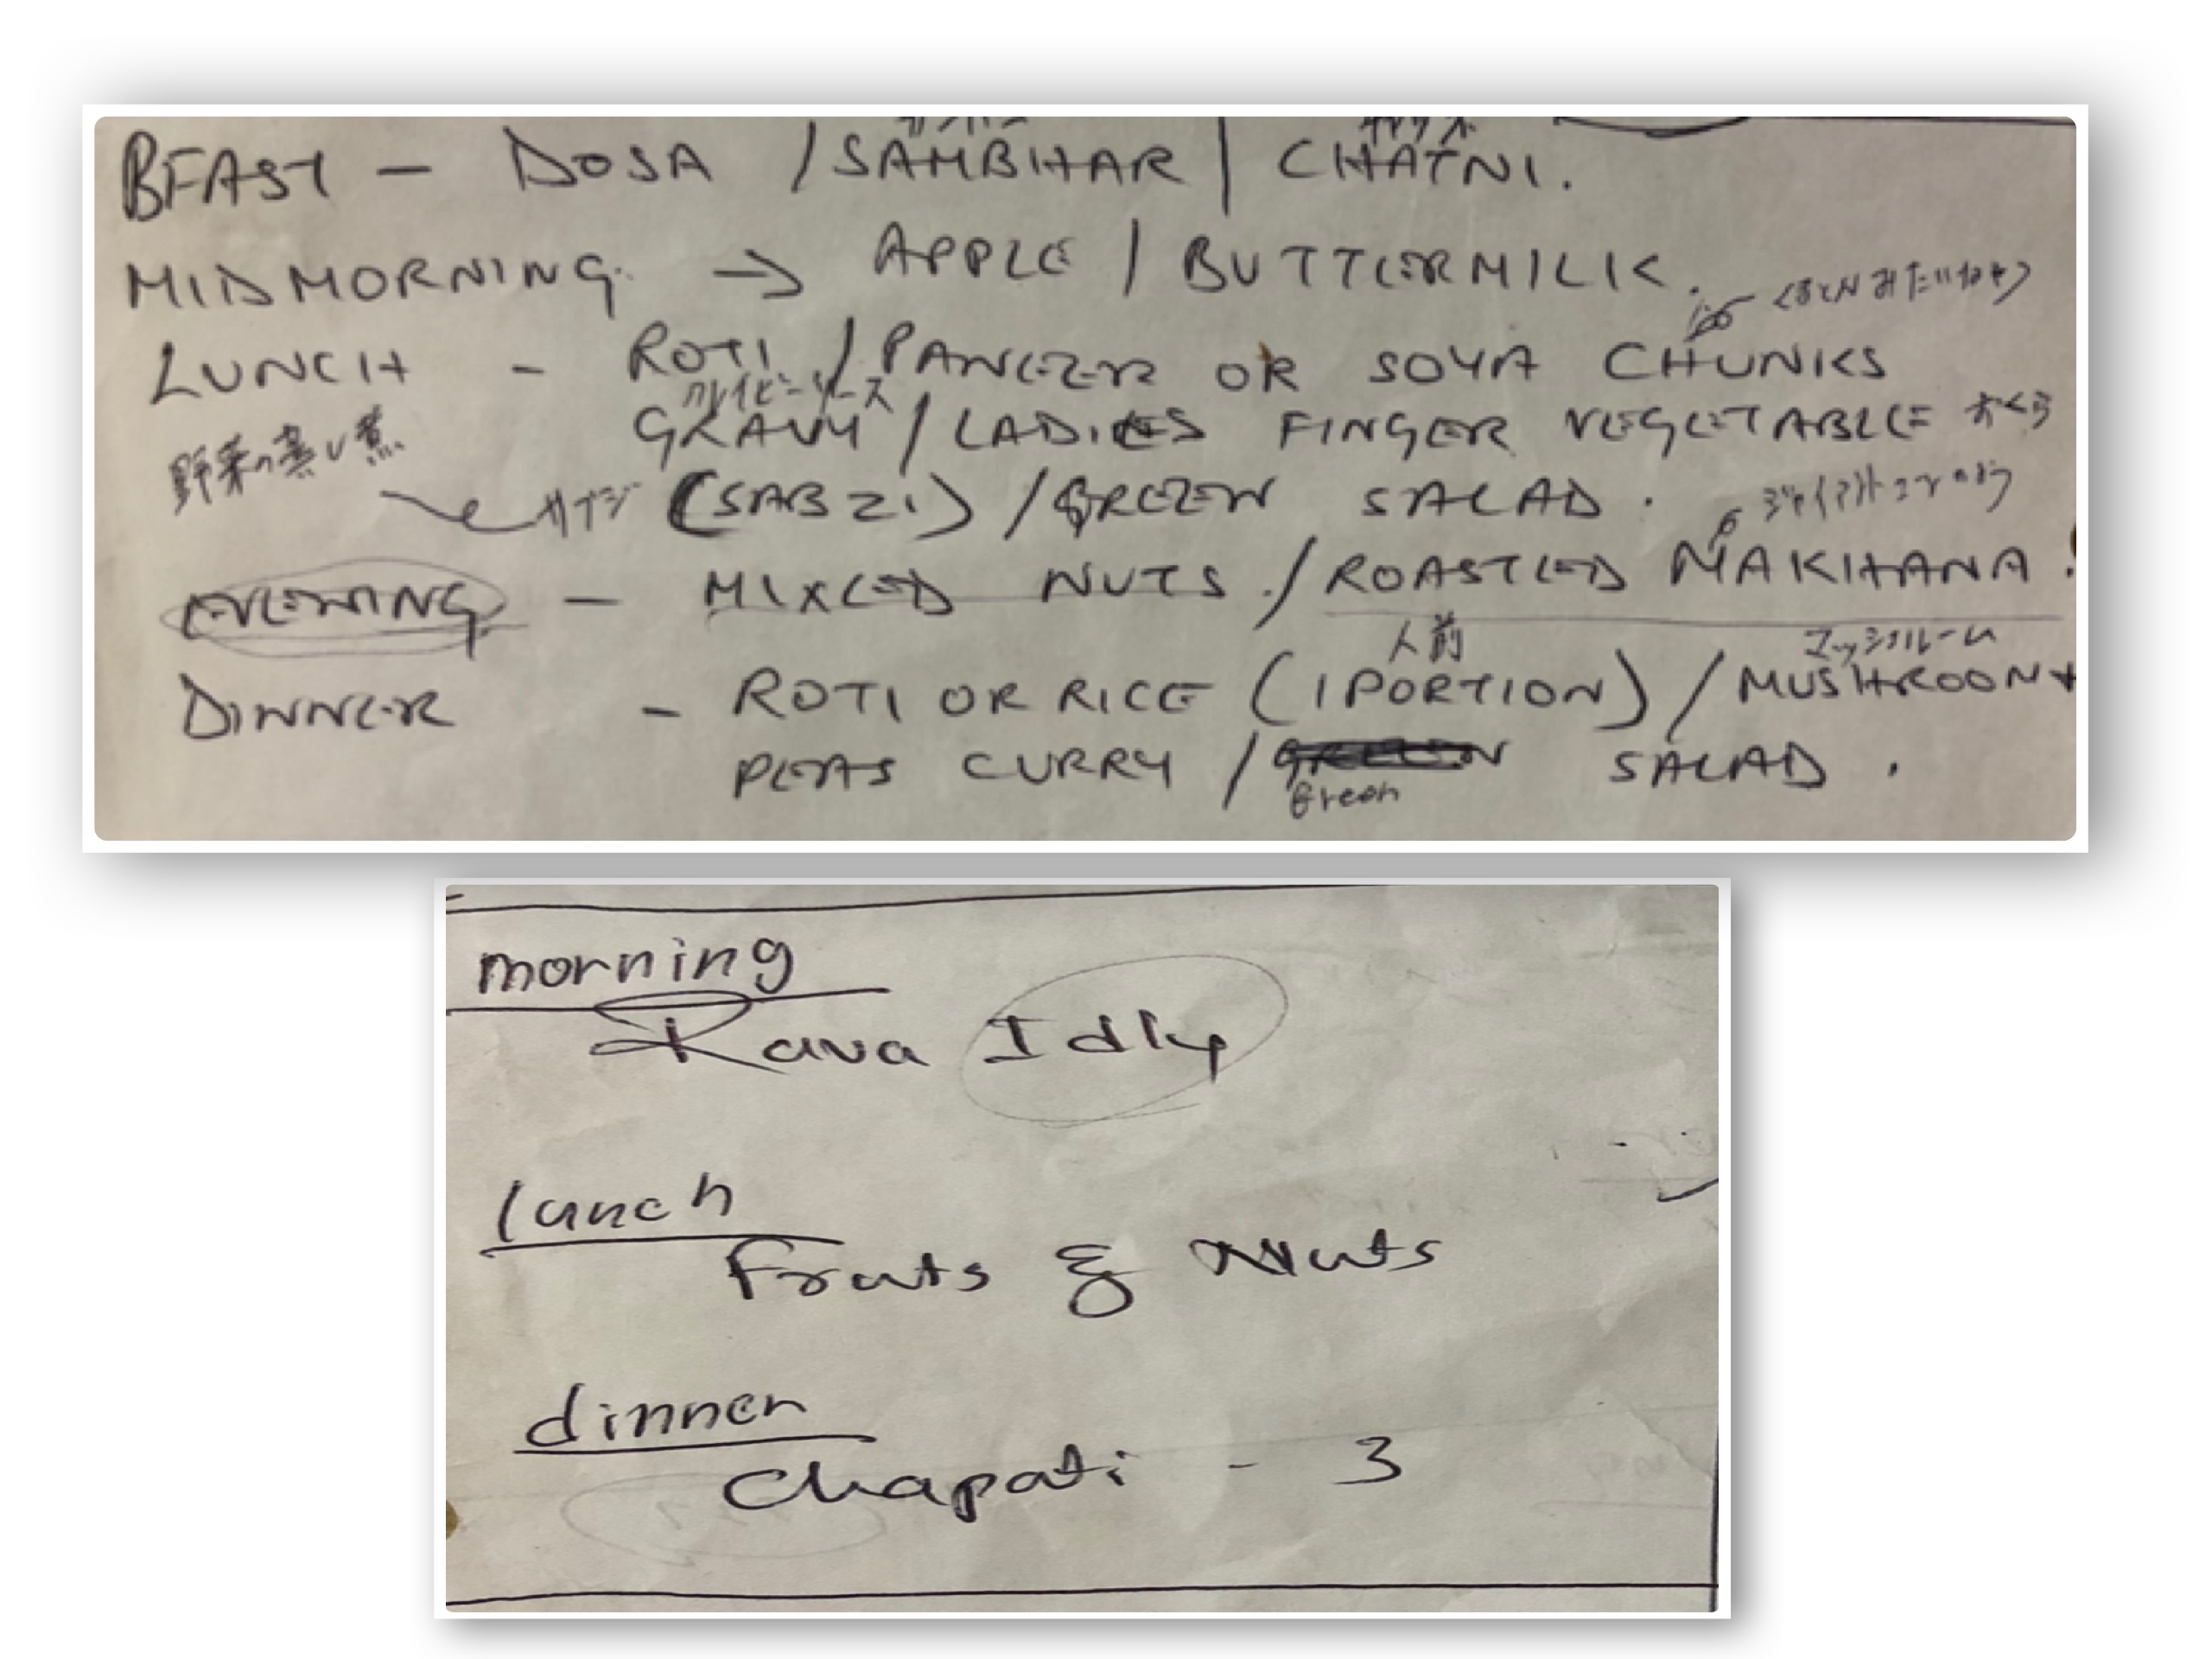 BFAST - DOSA / SAMBHAR | CHATNI.
MIDMORNING. → APPLE / BUTTERMILK.
みたいなもの
LUNCH - ROTI / PANEER OR SOYA CHUNKS
グレイビーソース
GRAVY / LADIES FINGER VEGETABLE おくら
野菜の蒸し煮
サブジ (SABZI) / GREEN SALAD.
EVENING - MIXED NUTS. / ROASTED MAKHANA.
人前 マッシュルーム
DINNER - ROTI OR RICE (1 PORTION) / MUSHROOM +
PEAS CURRY / GREEN SALAD.
Green
morning
Rava Idly
lunch
Fruts & Nuts
dinner
Chapati - 3